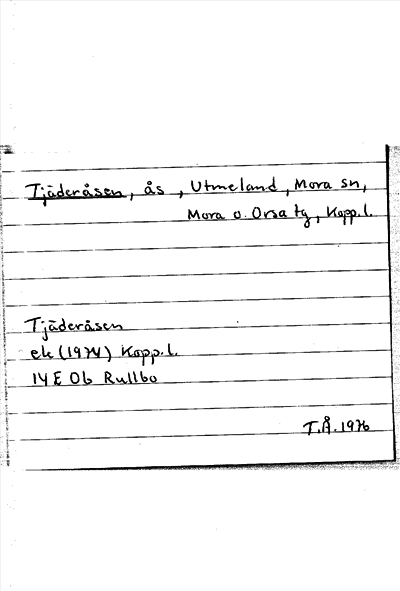 Tjäderåsen, ås, Utmeland, Mora sn,
Mora o. Orsa tg, Kopp.l.
Tjäderåsen
ek (1974) Kopp.l.
14E 0b Rullbo
T.Å. 1976